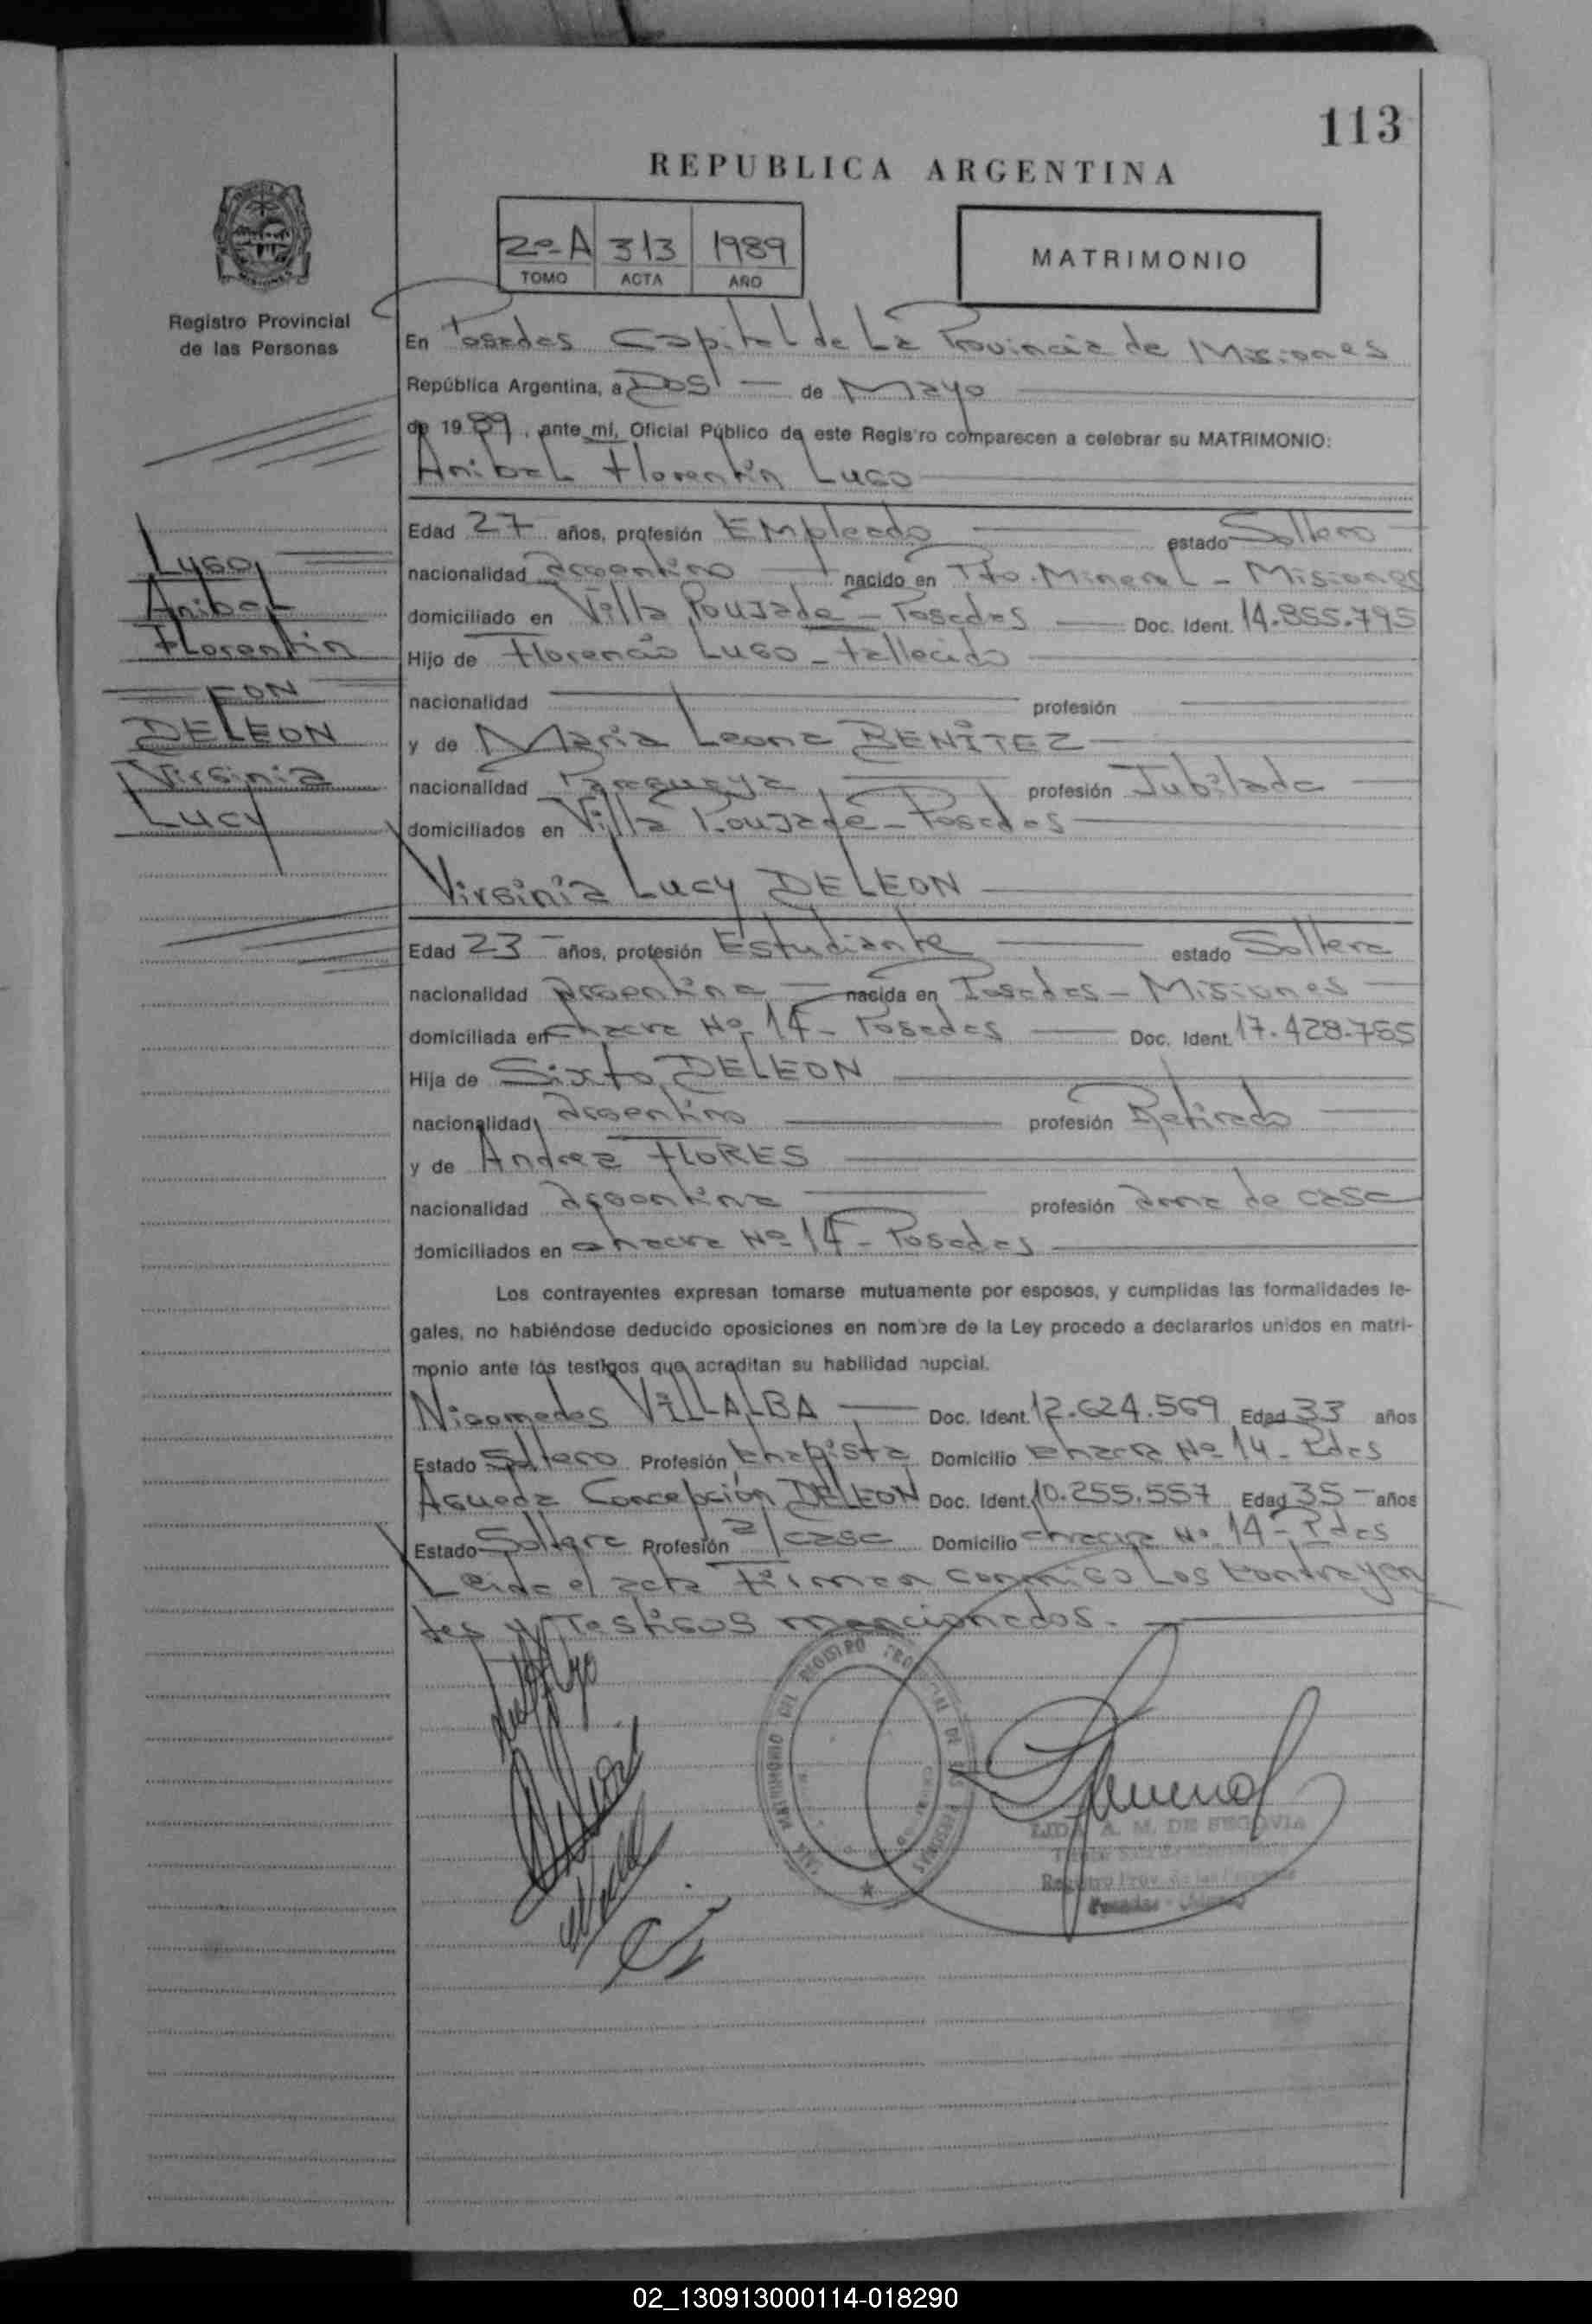 113
REPUBLICA ARGENTINA
2º A 313 1989
TOMO ACTA AÑO
MATRIMONIO
Registro Provincial
de las Personas
En Posadas Capital de La Provincia de Misiones
República Argentina, a Dos — de Mayo
de 1989, ante mí, Oficial Público de este Registro comparecen a celebrar su MATRIMONIO:
Anibal Florentín Lugo
Lugo,
Anibal
Florentín
CON
DELEON
Virginia
Lucy
Edad 27 años, profesión Empleado estado Soltero
nacionalidad argentino nacido en Pto. Mineral - Misiones
domiciliado en Villa Poujade - Posadas Doc. Ident. 14.855.795
Hijo de Florencio Lugo - fallecido
nacionalidad profesión
y de María Leona BENÍTEZ
nacionalidad Paraguaya profesión Jubilada
domiciliados en Villa Poujade - Posadas
Virginia Lucy DELEON
Edad 23 - años, profesión Estudiante estado Soltera
nacionalidad argentina nacida en Posadas - Misiones
domiciliada en chacra Nº 14 - Posadas Doc. Ident. 17.428.785
Hija de Sixto DELEON
nacionalidad argentino profesión Retirado
y de Andrea FLORES
nacionalidad argentina profesión ama de casa
domiciliados en chacra Nº 14 - Posadas
Los contrayentes expresan tomarse mutuamente por esposos, y cumplidas las formalidades le-
gales, no habiéndose deducido oposiciones en nombre de la Ley procedo a declararlos unidos en matri-
monio ante los testigos que acreditan su habilidad nupcial.
Nicomedes VILLALBA Doc. Ident. 12.624.569 Edad 33 años
Estado Soltero Profesión Chapista Domicilio chacra Nº 14 - Pdas
Agueda Concepción DELEON Doc. Ident. 10.255.557 Edad 35 - años
Estado Soltera Profesión a/casa Domicilio chacra Nº 14 - Pdas
Leida el acta Firman conmigo Los Contrayen
tes y Testigos mencionados.
REGISTRO PROVINCIAL DE LAS PERSONAS
LIDA A. M. DE SEGOVIA
Registro Prov. de las Personas
Posadas
02_130913000114-018290